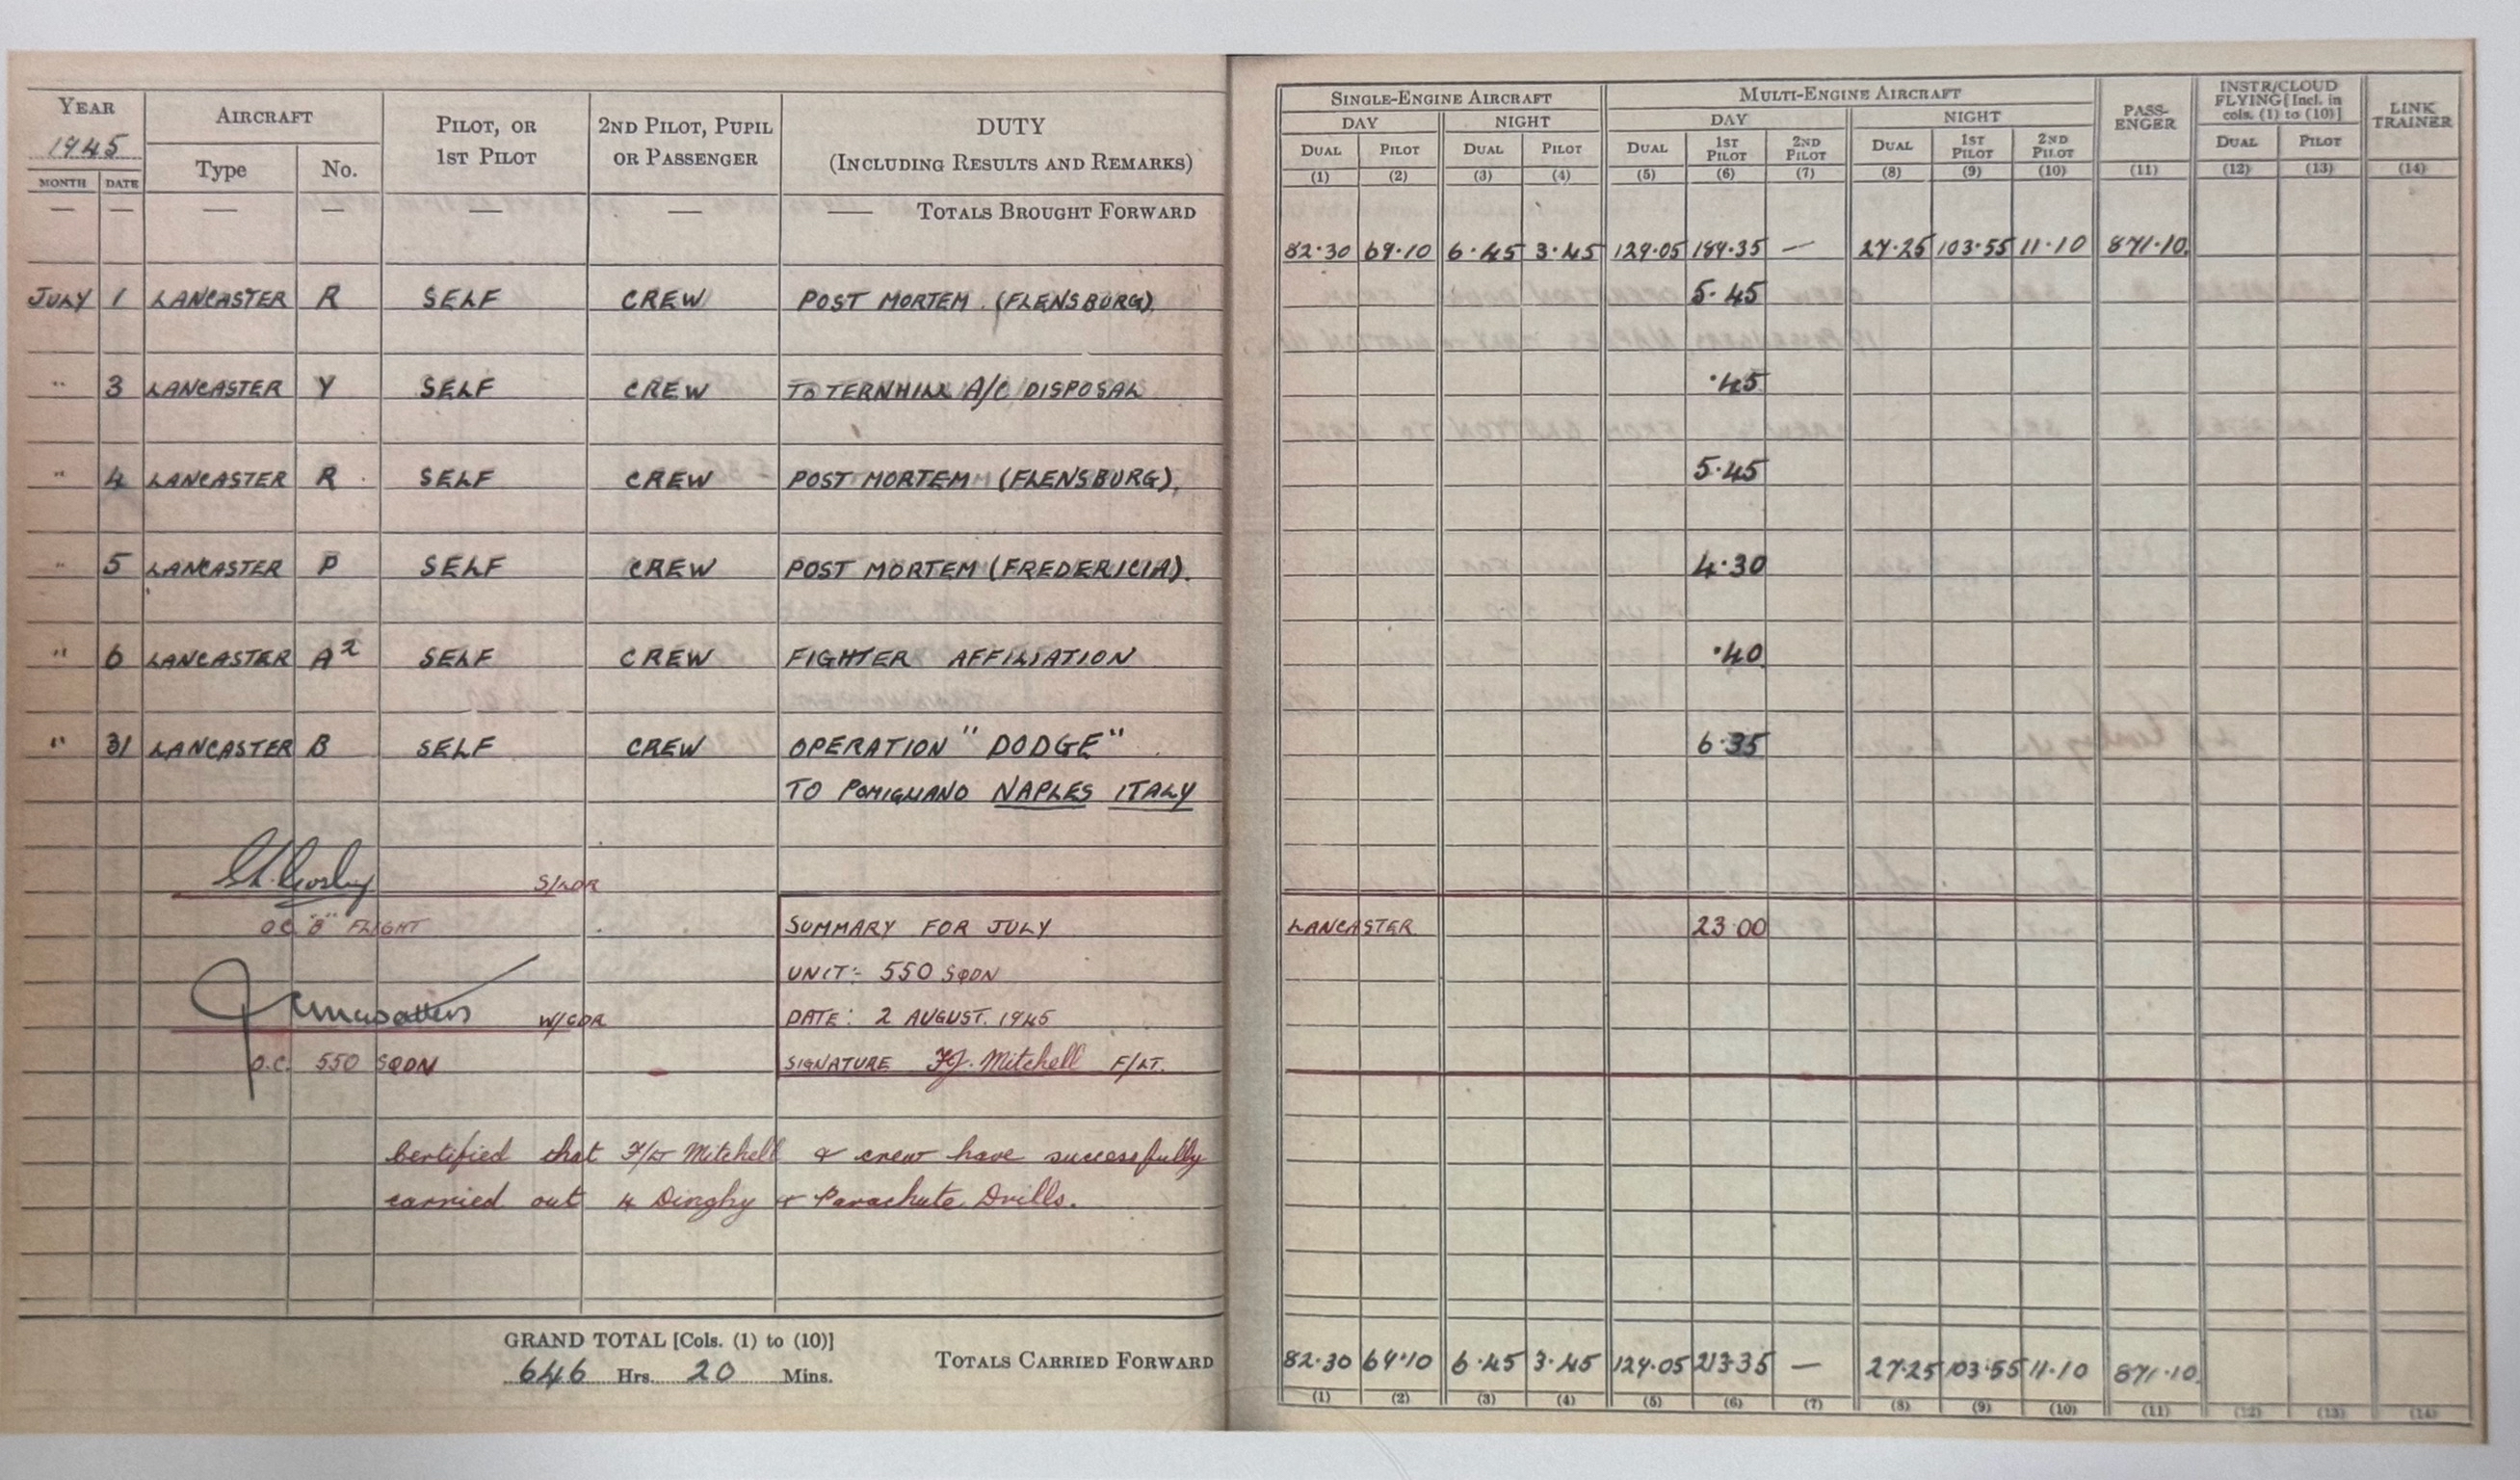 YEAR 1945
AIRCRAFT
PILOT, OR 1ST PILOT
2ND PILOT, PUPIL OR PASSENGER
DUTY (INCLUDING RESULTS AND REMARKS)
SINGLE-ENGINE AIRCRAFT
MULTI-ENGINE AIRCRAFT
PASS-ENGER
INSTR/CLOUD FLYING [Incl. in cols. (1) to (10)]
LINK TRAINER
DAY NIGHT DAY NIGHT
MONTH DATE Type No.
DUAL PILOT DUAL PILOT DUAL 1ST PILOT 2ND PILOT DUAL 1ST PILOT 2ND PILOT DUAL PILOT
(1) (2) (3) (4) (5) (6) (7) (8) (9) (10) (11) (12) (13) (14)
— — — — — — — TOTALS BROUGHT FORWARD
82·30 69·10 6·45 3·45 129·05 189·35 — 27·25 103·55 11·10 871·10
JULY 1 LANCASTER R SELF CREW POST MORTEM. (FLENSBURG). 5·45
" 3 LANCASTER Y SELF CREW TO TERNHILL A/C DISPOSAL ·45
" 4 LANCASTER R SELF CREW POST MORTEM (FLENSBURG). 5·45
" 5 LANCASTER P SELF CREW POST MORTEM (FREDERICIA). 4·30
" 6 LANCASTER A2 SELF CREW FIGHTER AFFILIATION ·40
" 31 LANCASTER B SELF CREW OPERATION "DODGE" 6·35
TO POMIGLIANO NAPLES ITALY
S/LDR
O.C. "B" FLIGHT
SUMMARY FOR JULY LANCASTER 23·00
UNIT:- 550 SQDN
W/CDR
DATE: 2 AUGUST. 1945
O.C. 550 SQDN
SIGNATURE F.J. Mitchell F/LT.
Certified that F/Lt Mitchell & crew have successfully
carried out 4 Dinghy & Parachute Drills.
GRAND TOTAL [Cols. (1) to (10)]
646 Hrs. 20 Mins.
TOTALS CARRIED FORWARD 82·30 69·10 6·45 3·45 129·05 213·35 — 27·25 103·55 11·10 871·10
(1) (2) (3) (4) (5) (6) (7) (8) (9) (10) (11) (12) (13) (14)